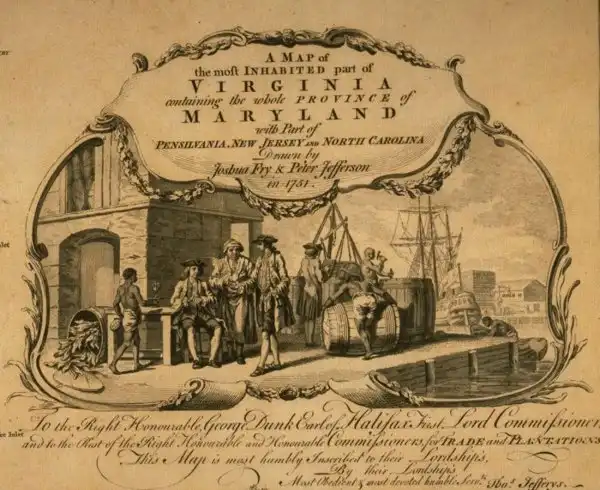 A MAP of
the most INHABITED part of
VIRGINIA
containing the whole PROVINCE of
MARYLAND
with Part of
PENSILVANIA, NEW JERSEY AND NORTH CAROLINA
Drawn by
Joshua Fry & Peter Jefferson
in 1751.
To the Right Honourable, George Dunk Earl of Halifax First Lord Commissioner,
and to the Rest of the Right Honourable and Honourable Commissioners, for TRADE and PLANTATIONS
This Map is most humbly Inscribed to their Lordship's,
By their Lordship's
Most Obedient & most devoted humble Serv.ts Tho.s Jefferys.